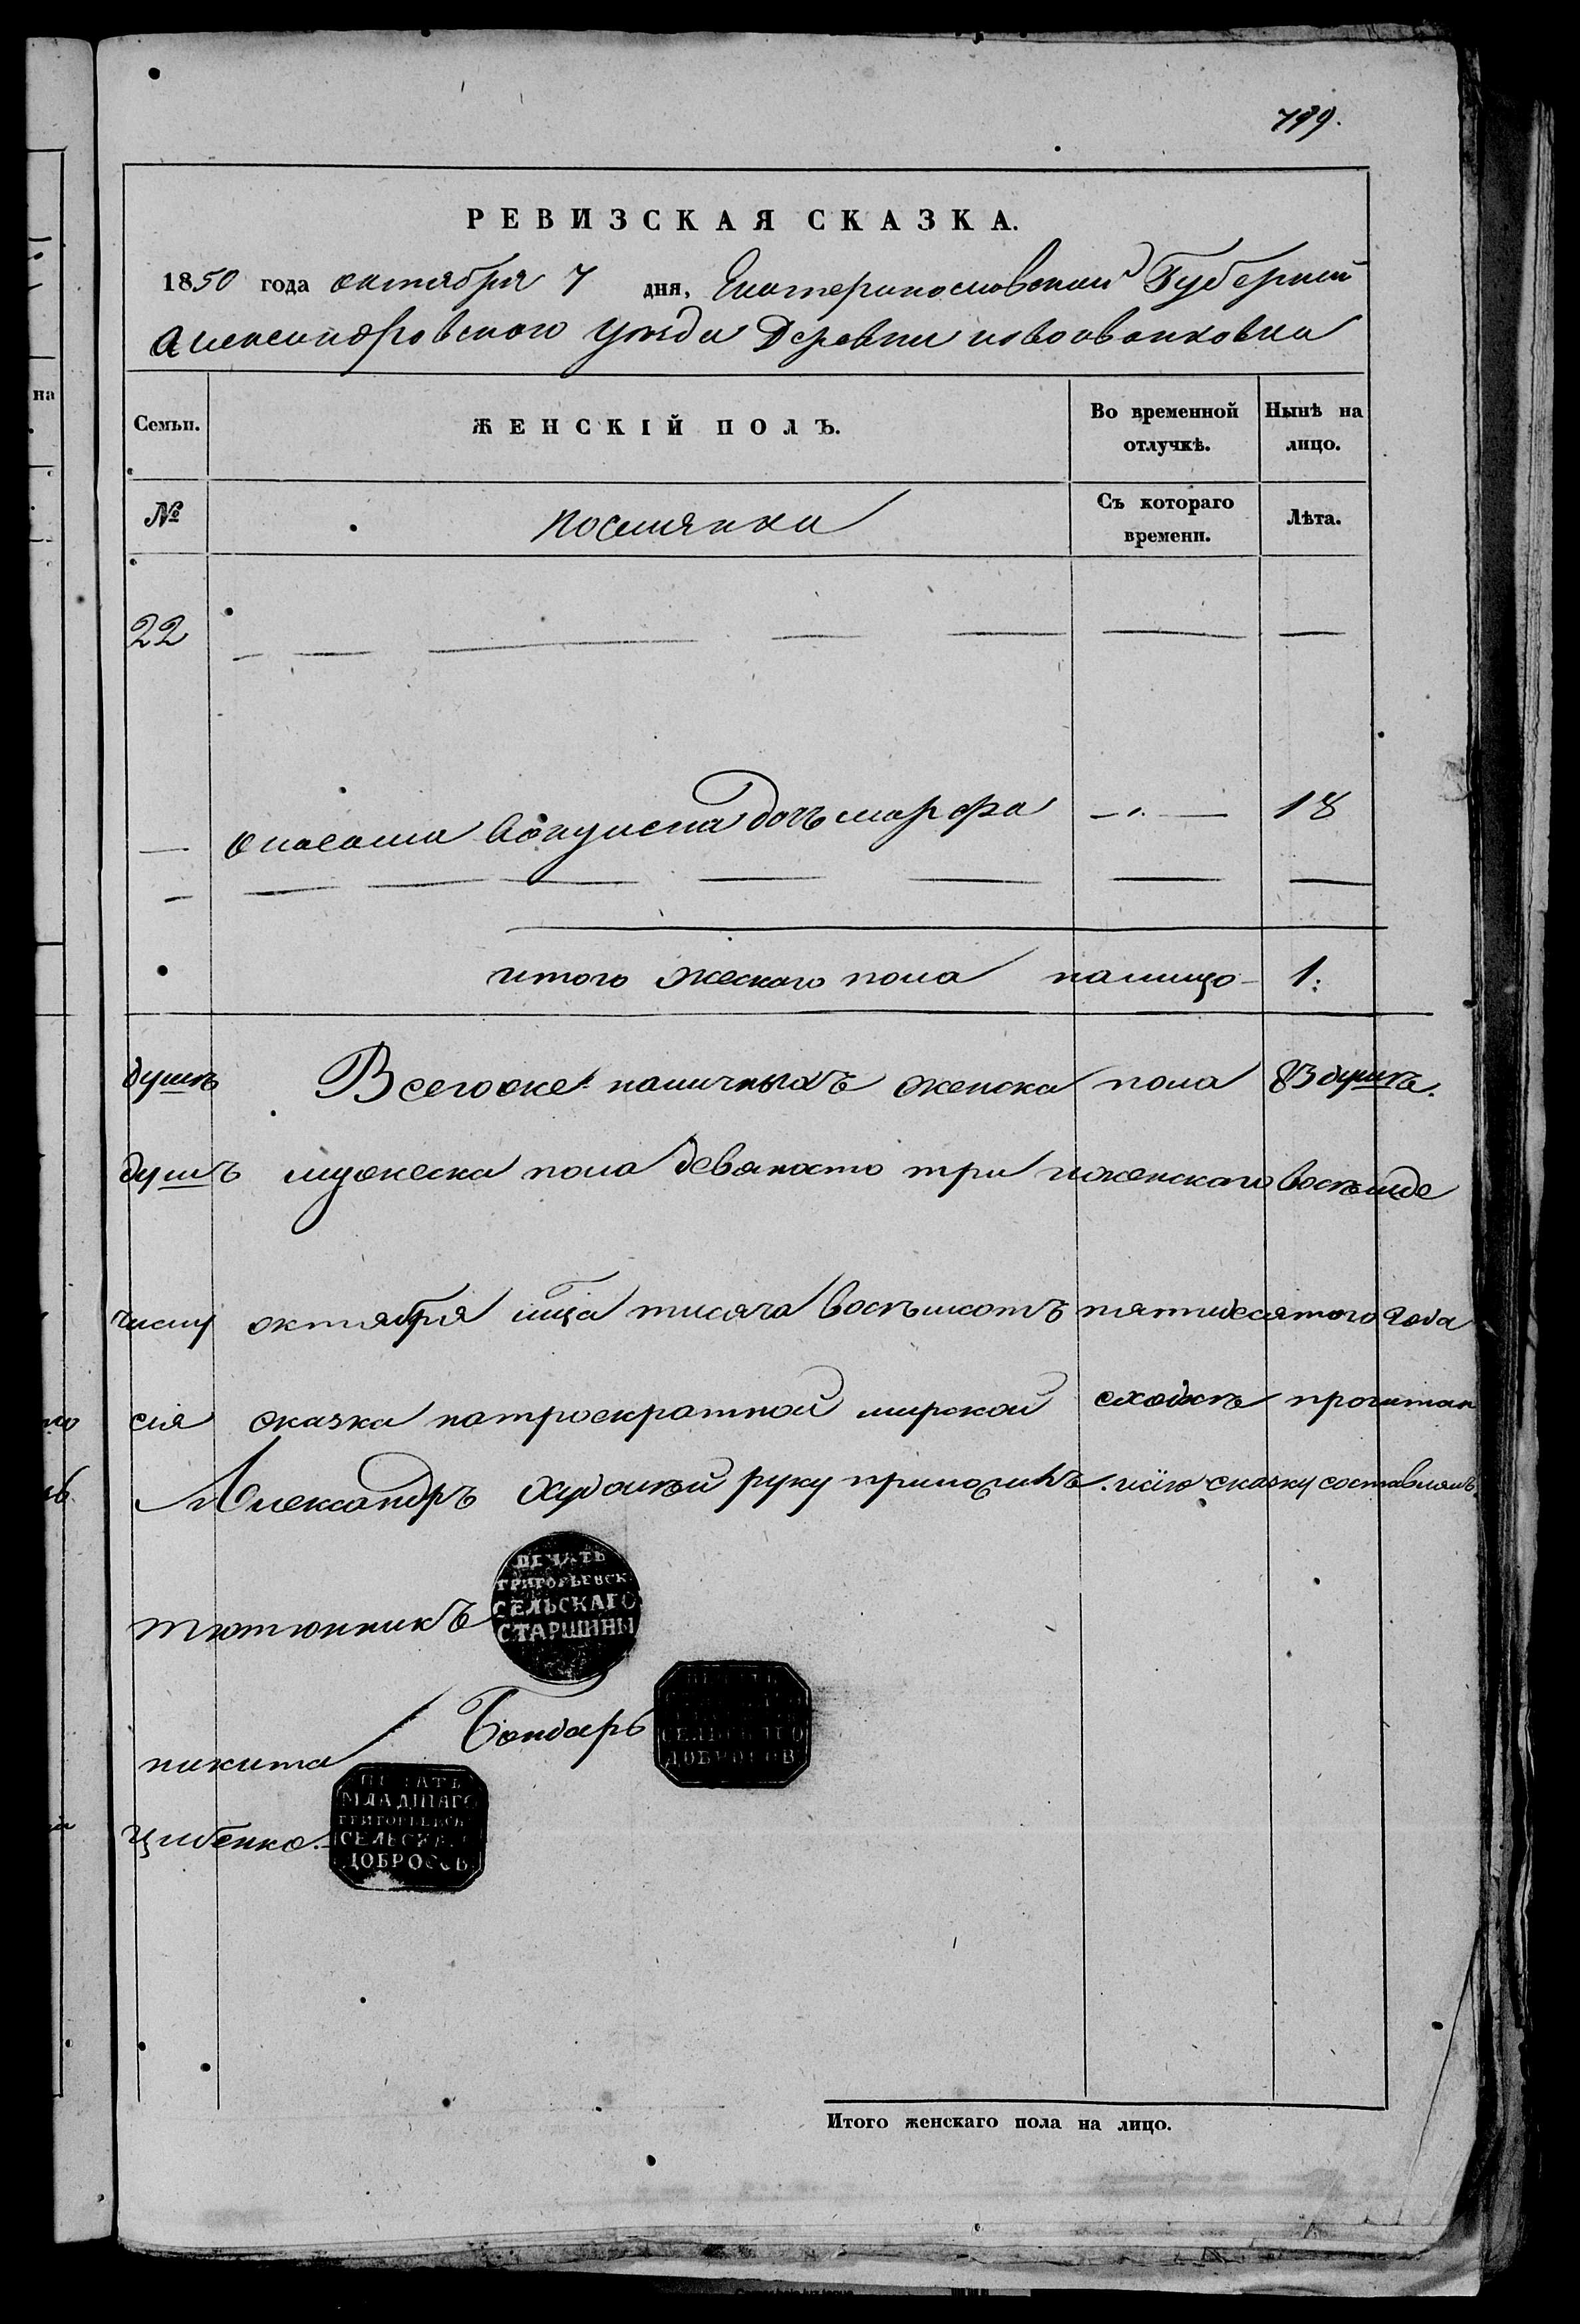 799.
РЕВИЗСКАЯ СКАЗКА.
1850 года октября 7 дня, Екатеринославской Губерний
Александровского уѣзда Деревни новоиванковка
Семьи. ЖЕНСКІЙ ПОЛЪ. Во временной отлучкѣ. Нынѣ на лицо.
№ поселянки Съ котораго времени. Лѣта.
22
дочь марфа 18
итого жеского пола налицо 1.
душъ Всегоже наличныхъ женска пола 83 душъ.
душъ мужеска пола девяносто три иженского восемде
числу октября мца тисяча восемсотъ пятидесятого года
сія сказка натроекратной мирской сходкѣ прочитан
Александръ руку приложилъ. исїю сказку составлялъ.
тютюнникъ
ПЕЧАТЬ
ГРИГОРЬЕВСК.
СЕЛЬСКАГО
СТАРШИНЫ
никита Бондарь
СЕЛЬСКАГО
ДОБРОСОВ
цибенко.
ПЕЧАТЬ
МЛАДШАГО
ГРИГОРЬЕВСК
СЕЛЬСКА
ДОБРОСОВ
Итого женскаго пола на лицо.
на